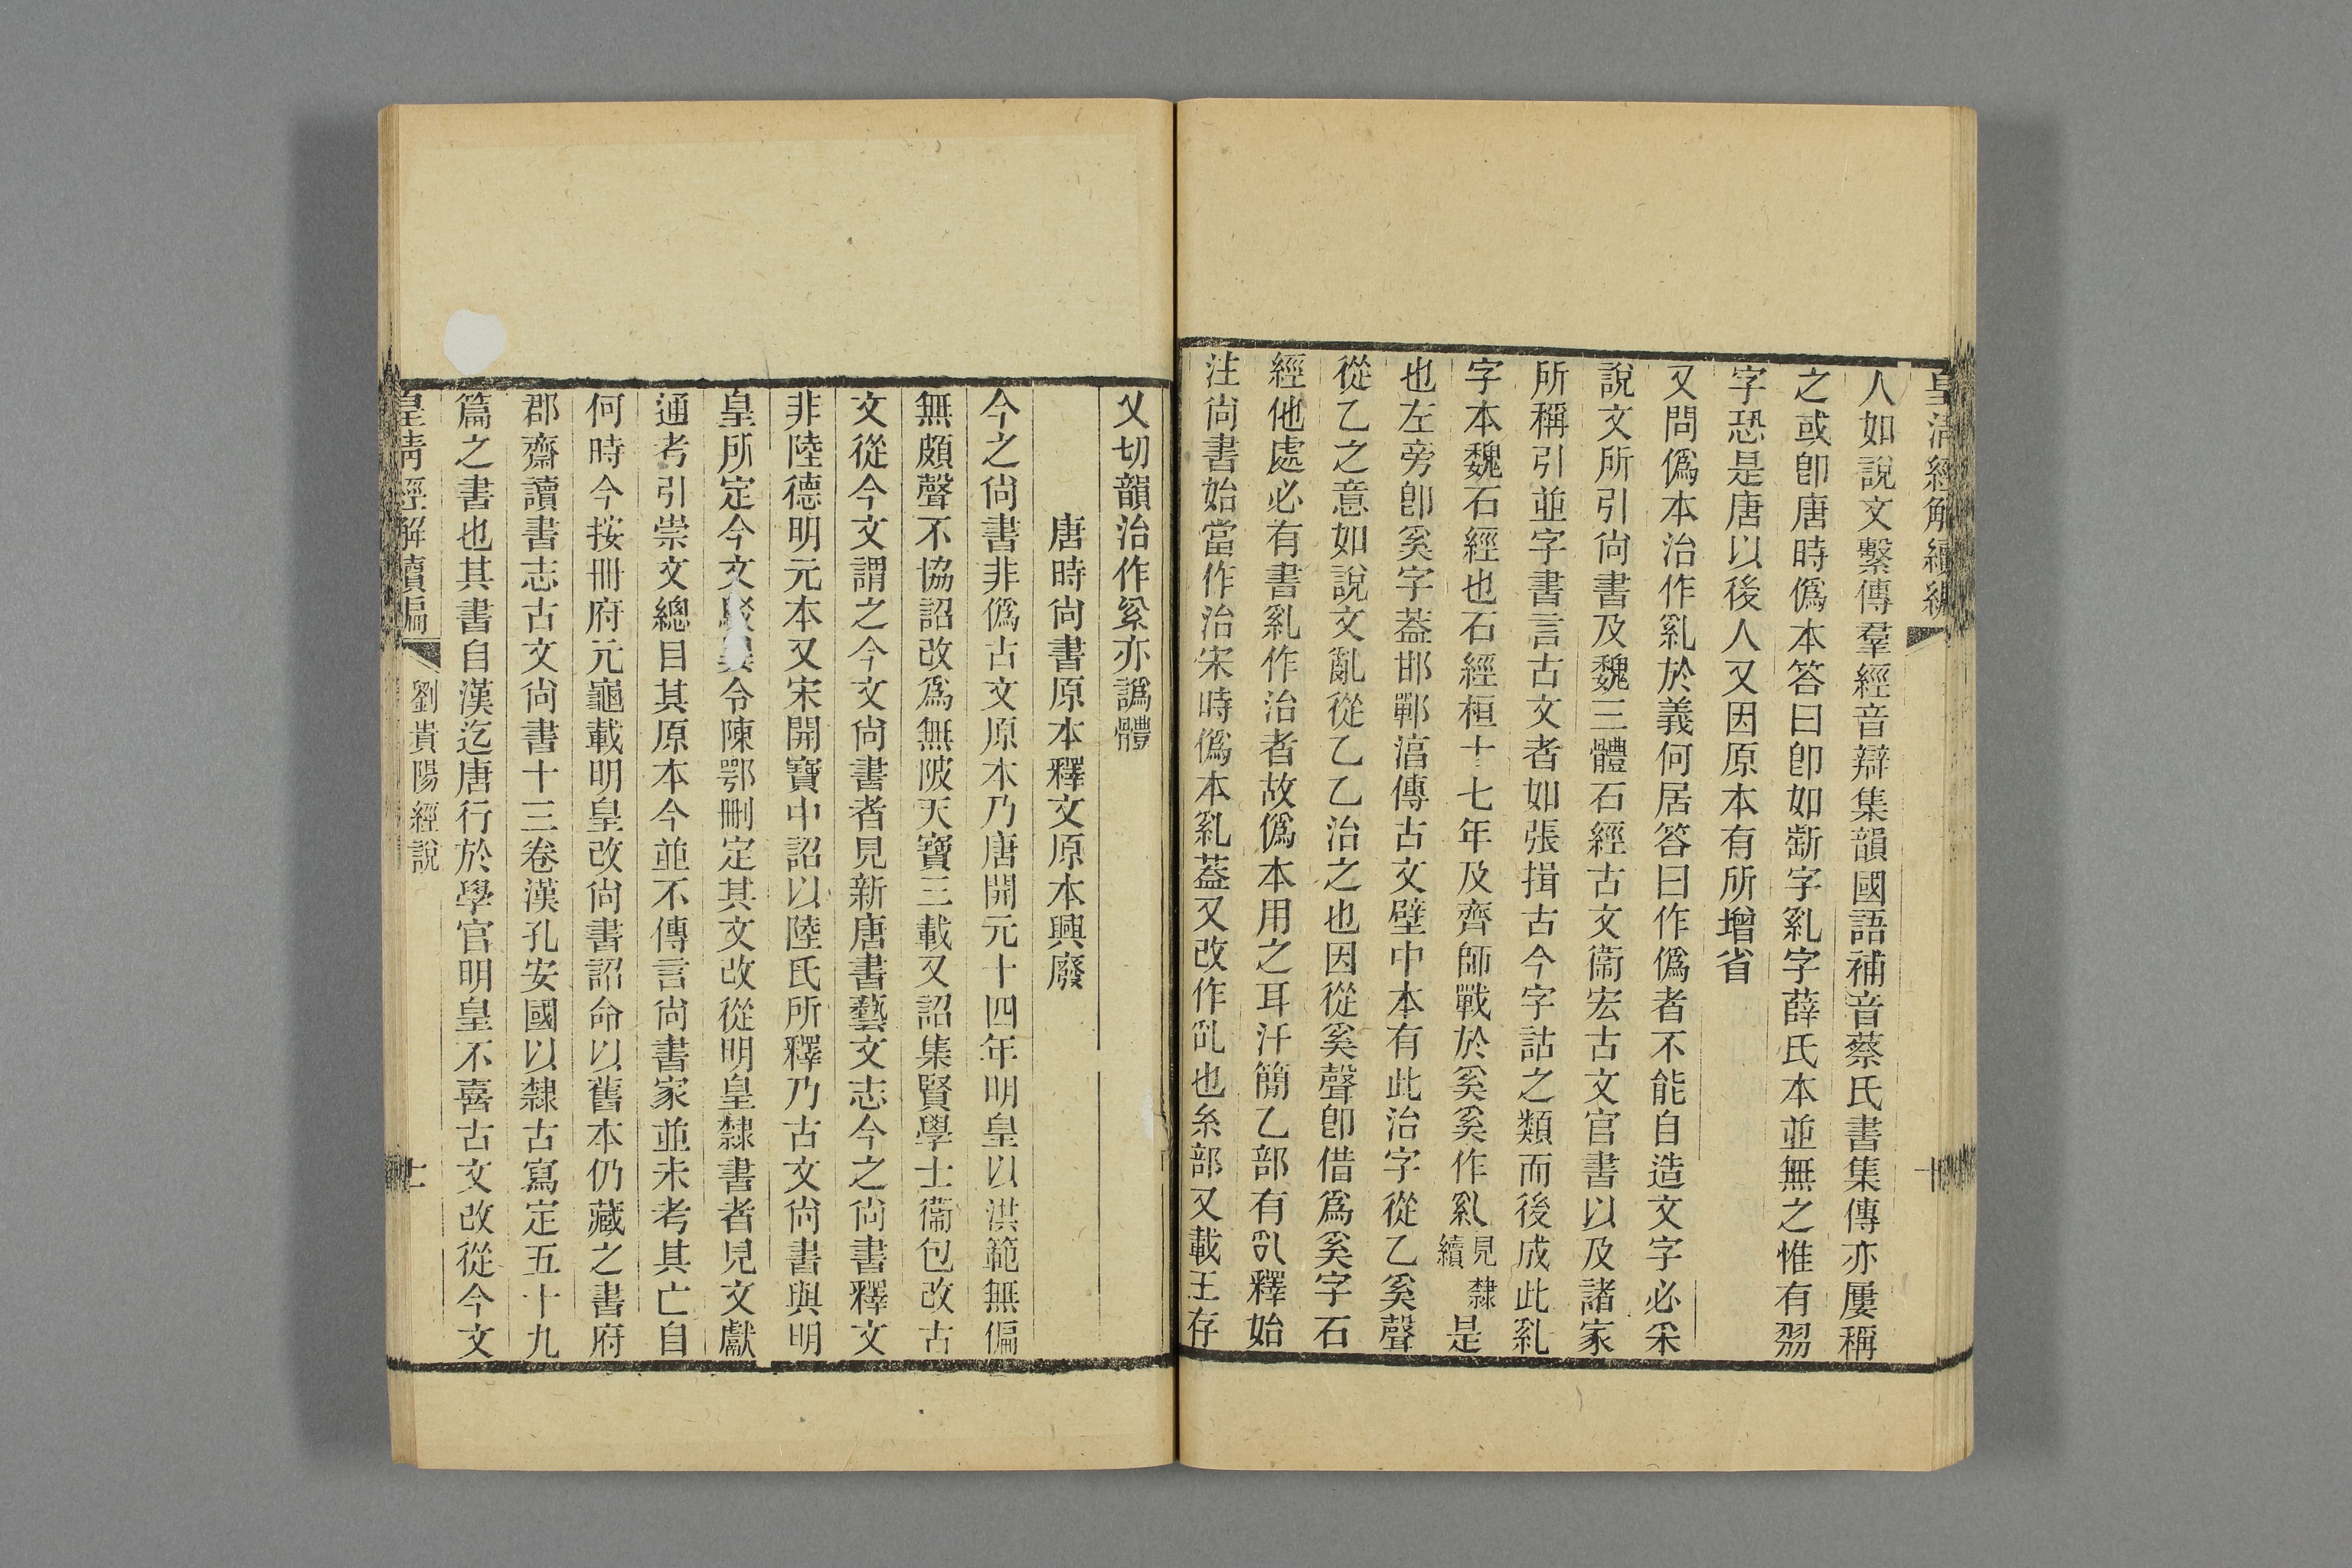 皇清經解續編
十
人如說文繫傳羣經音辯集韻國語補音蔡氏書集傳亦屢稱
之或卽唐時僞本答曰卽如斷字乿字薛氏本並無之惟有㓞
字恐是唐以後人又因原本有所增省
又問僞本治作乿於義何居答曰作僞者不能自造文字必采
說文所引尙書及魏三體石經古文衞宏古文官書以及諸家
所稱引並字書言古文者如張揖古今字詁之類而後成此乿
字本魏石經也石經桓十七年及齊師戰於奚奚作乿見隸續是
也左旁卽奚字葢邯鄲湻傳古文壁中本有此治字從乙奚聲
從乙之意如說文亂從乙乙治之也因從奚聲卽借爲奚字石
經他處必有書乿作治者故僞本用之耳汗簡乙部有釋始
注尙書始當作治宋時僞本乿葢又改作也糸部又載王存
乂切韻治作亦譌體
唐時尙書原本釋文原本興廢
今之尙書非僞古文原本乃唐開元十四年明皇以洪範無偏
無頗聲不協詔改爲無陂天寶三載又詔集賢學士衞包改古
文從今文謂之今文尙書者見新唐書藝文志今之尙書釋文
非陸德明元本又宋開寶中詔以陸氏所釋乃古文尙書與明
皇所定今文駁異令陳鄂删定其文改從明皇隸書者見文獻
通考引崇文總目其原本今並不傳言尙書家並未考其亡自
何時今按冊府元龜載明皇改尙書詔命以舊本仍藏之書府
郡齋讀書志古文尙書十三卷漢孔安國以隸古寫定五十九
篇之書也其書自漢迄唐行於學官明皇不喜古文改從今文
皇淸經解續編
劉貴陽經說